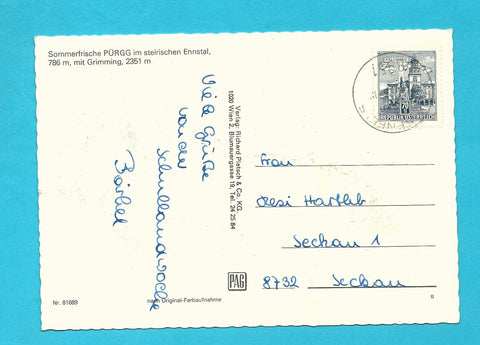 Sommerfrische PÜRGG im steirischen Ennstal,
786 m, mit Grimming, 2351 m
Viele Grüße
von der
Schullandwoche
Bärbel
Verlag: Richard Pietsch & Co. KG.
1020 Wien 2, Blumauergasse 19, Tel. 24 25 84
REPUBLIK ÖSTERREICH
Frau
Resi Hartleb
Seckau 1
8732 Seckau
PAG
Nr. 81689
nach Original-Farbaufnahme